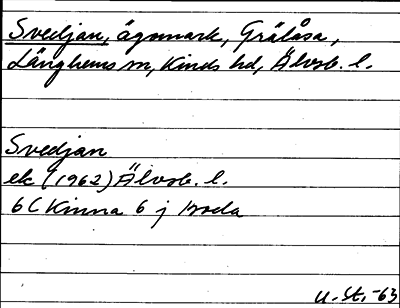 Svedjan, ägomark, Grälåsa,
Länghems sn, Kinds hd, Älvsb. l.
Svedjan
ek (1962) Älvsb. l.
6C Kinna 6 j
U. St. -63